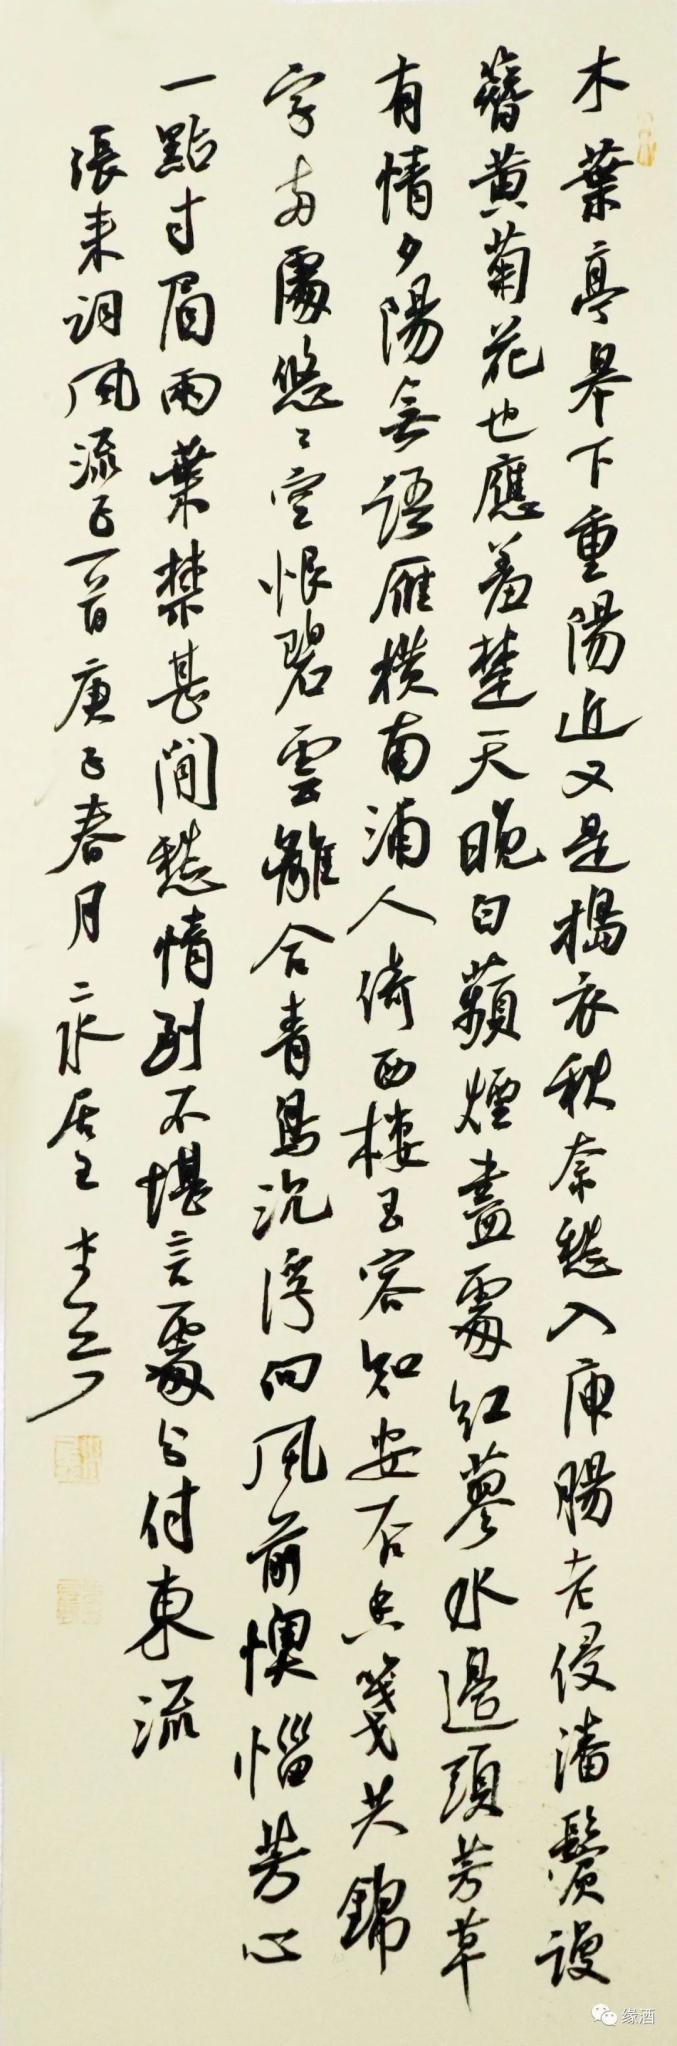 木葉亭皋下重陽近又是搗衣秋奈愁入庾腸老侵潘鬢謾
簪黄菊花也應羞楚天晚白蘋煙盡處紅蓼水邊頭芳草
有情夕陽無語雁橫南浦人倚西樓玉容知安否香箋共錦
字兩處悠〻空恨碧雲離合青鳥沉浮向風前懊惱芳心
一點寸眉兩葉禁甚閒愁情到不堪言處分付東流
張耒詞風流子一首庚子春月二永居主
缘酒